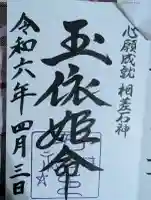 心願成就 相差石神
玉依姫命
令和六年 四月三日